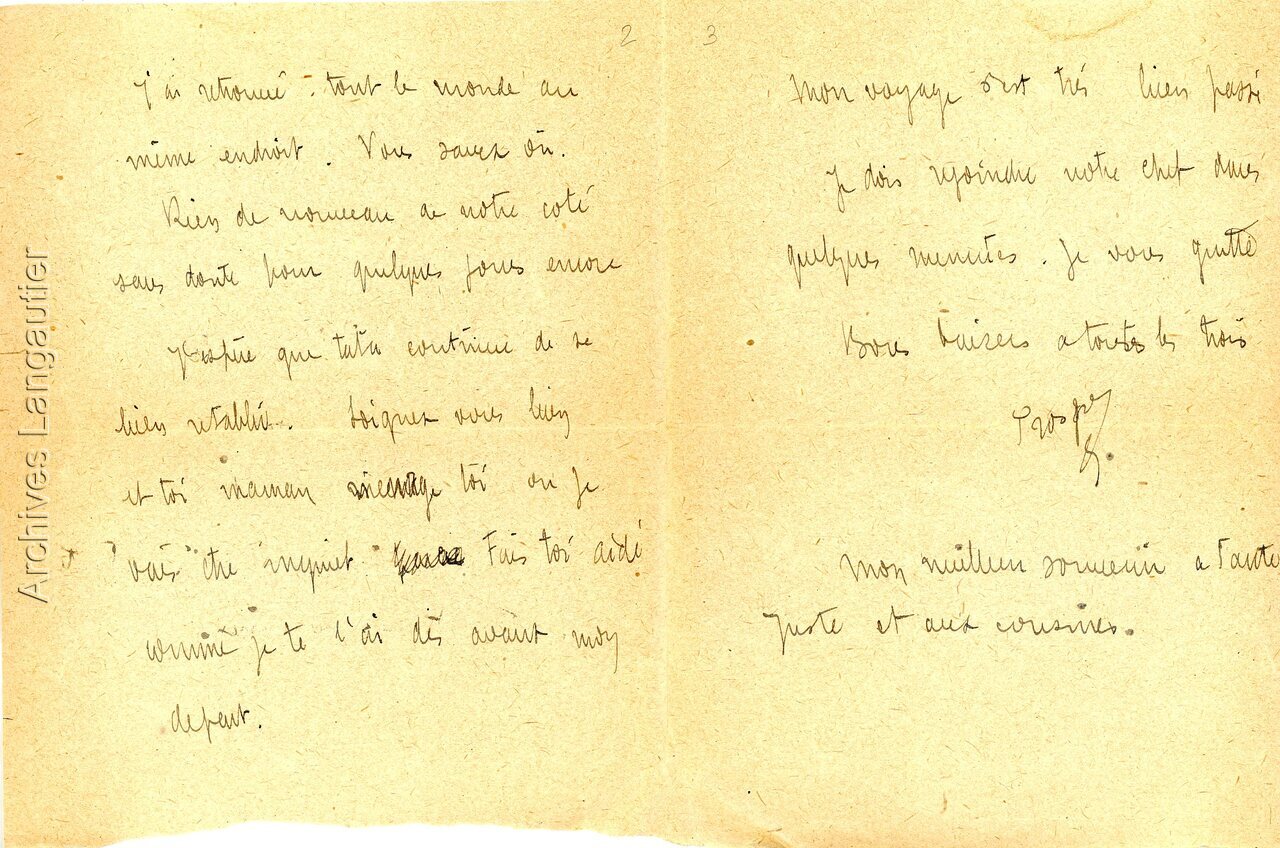 2
J'ai retrouvé tout le monde au
même endroit. Vous savez où.
Rien de nouveau de notre coté
sans doute pour quelques jours encore
J'espère que tata continue de se
bien rétablir. Soignez vous bien
et toi maman menage toi ou je
vais être inquiet Fais toi aidé
comme je te l'ai dis avant mon
depart.
3
Mon voyage s'est très bien passé
Je dois rejoindre notre chef dans
quelques minutes. Je vous quitte
Bons baisers a toutes les trois
Prosper
Mon meilleur souvenir a Tante
Juste et aux cousines.
Archives Langautier